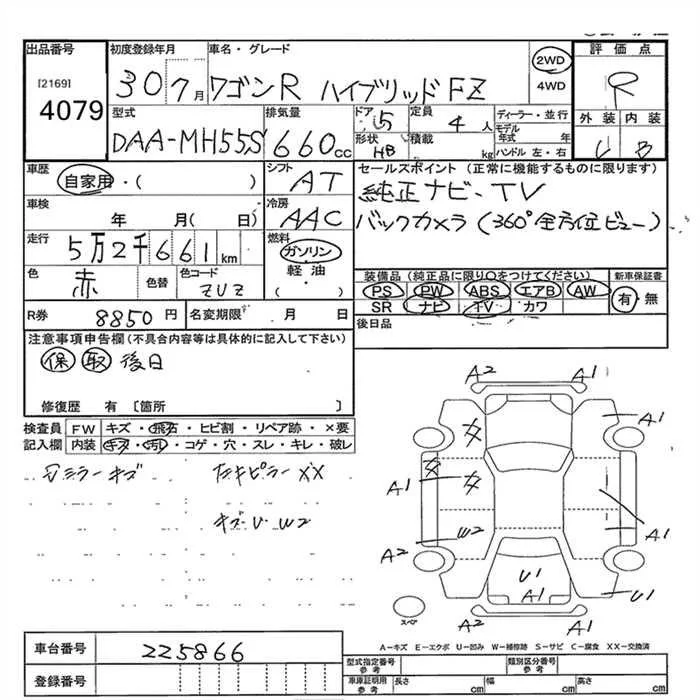 出品番号 初度登録年月 車名・グレード 評価点
[2169] 4079
30 7月 ワゴンR ハイブリッドFZ 2WD 4WD R
型式 排気量 ドア 5 定員 4人 ディーラー・並行 外装 内装
DAA-MH55S 660cc 形状 HB 積載 kg モデル年式 年 ハンドル 左・右 B
車歴 シフト セールスポイント(正常に機能するものに限ります)
自家用・( ) AT 純正ナビ・TV
車検 冷房 バックカメラ(360°全方位ビュー)
年 月( 日) AAC
走行 燃料
5万2千661km ガソリン
色 色替 色コード 軽油 装備品(純正品に限り○をつけてください) 新車保証書
赤 ZUZ ( ) PS PW ABS エアB AW 有・無
SR ナビ TV カワ
R券 8850円 名変期限 月 日 後日品
注意事項申告欄(不具合内容等は具体的に記入して下さい)
保 取 後日
修復歴 有 [箇所 ]
検査員 FW キズ・飛石・ヒビ割・リペア跡・×要
記入欄 内装 キズ・汚れ・コゲ・穴・スレ・キレ・破レ
ミラーキズ ピラーXX
キズ・U・W2
A2 A1
A1
A1
W2 A1
A2 U1 A1 U1
A2 A1
スペア
A-キズ E-エクボ U-凹み W-補修跡 S-サビ C-腐食 XX-交換済
車台番号 225866
登録番号
型式指定番号 参考 類別区分番号 参考
車庫証明用 参考 長さ cm 幅 cm 高さ cm